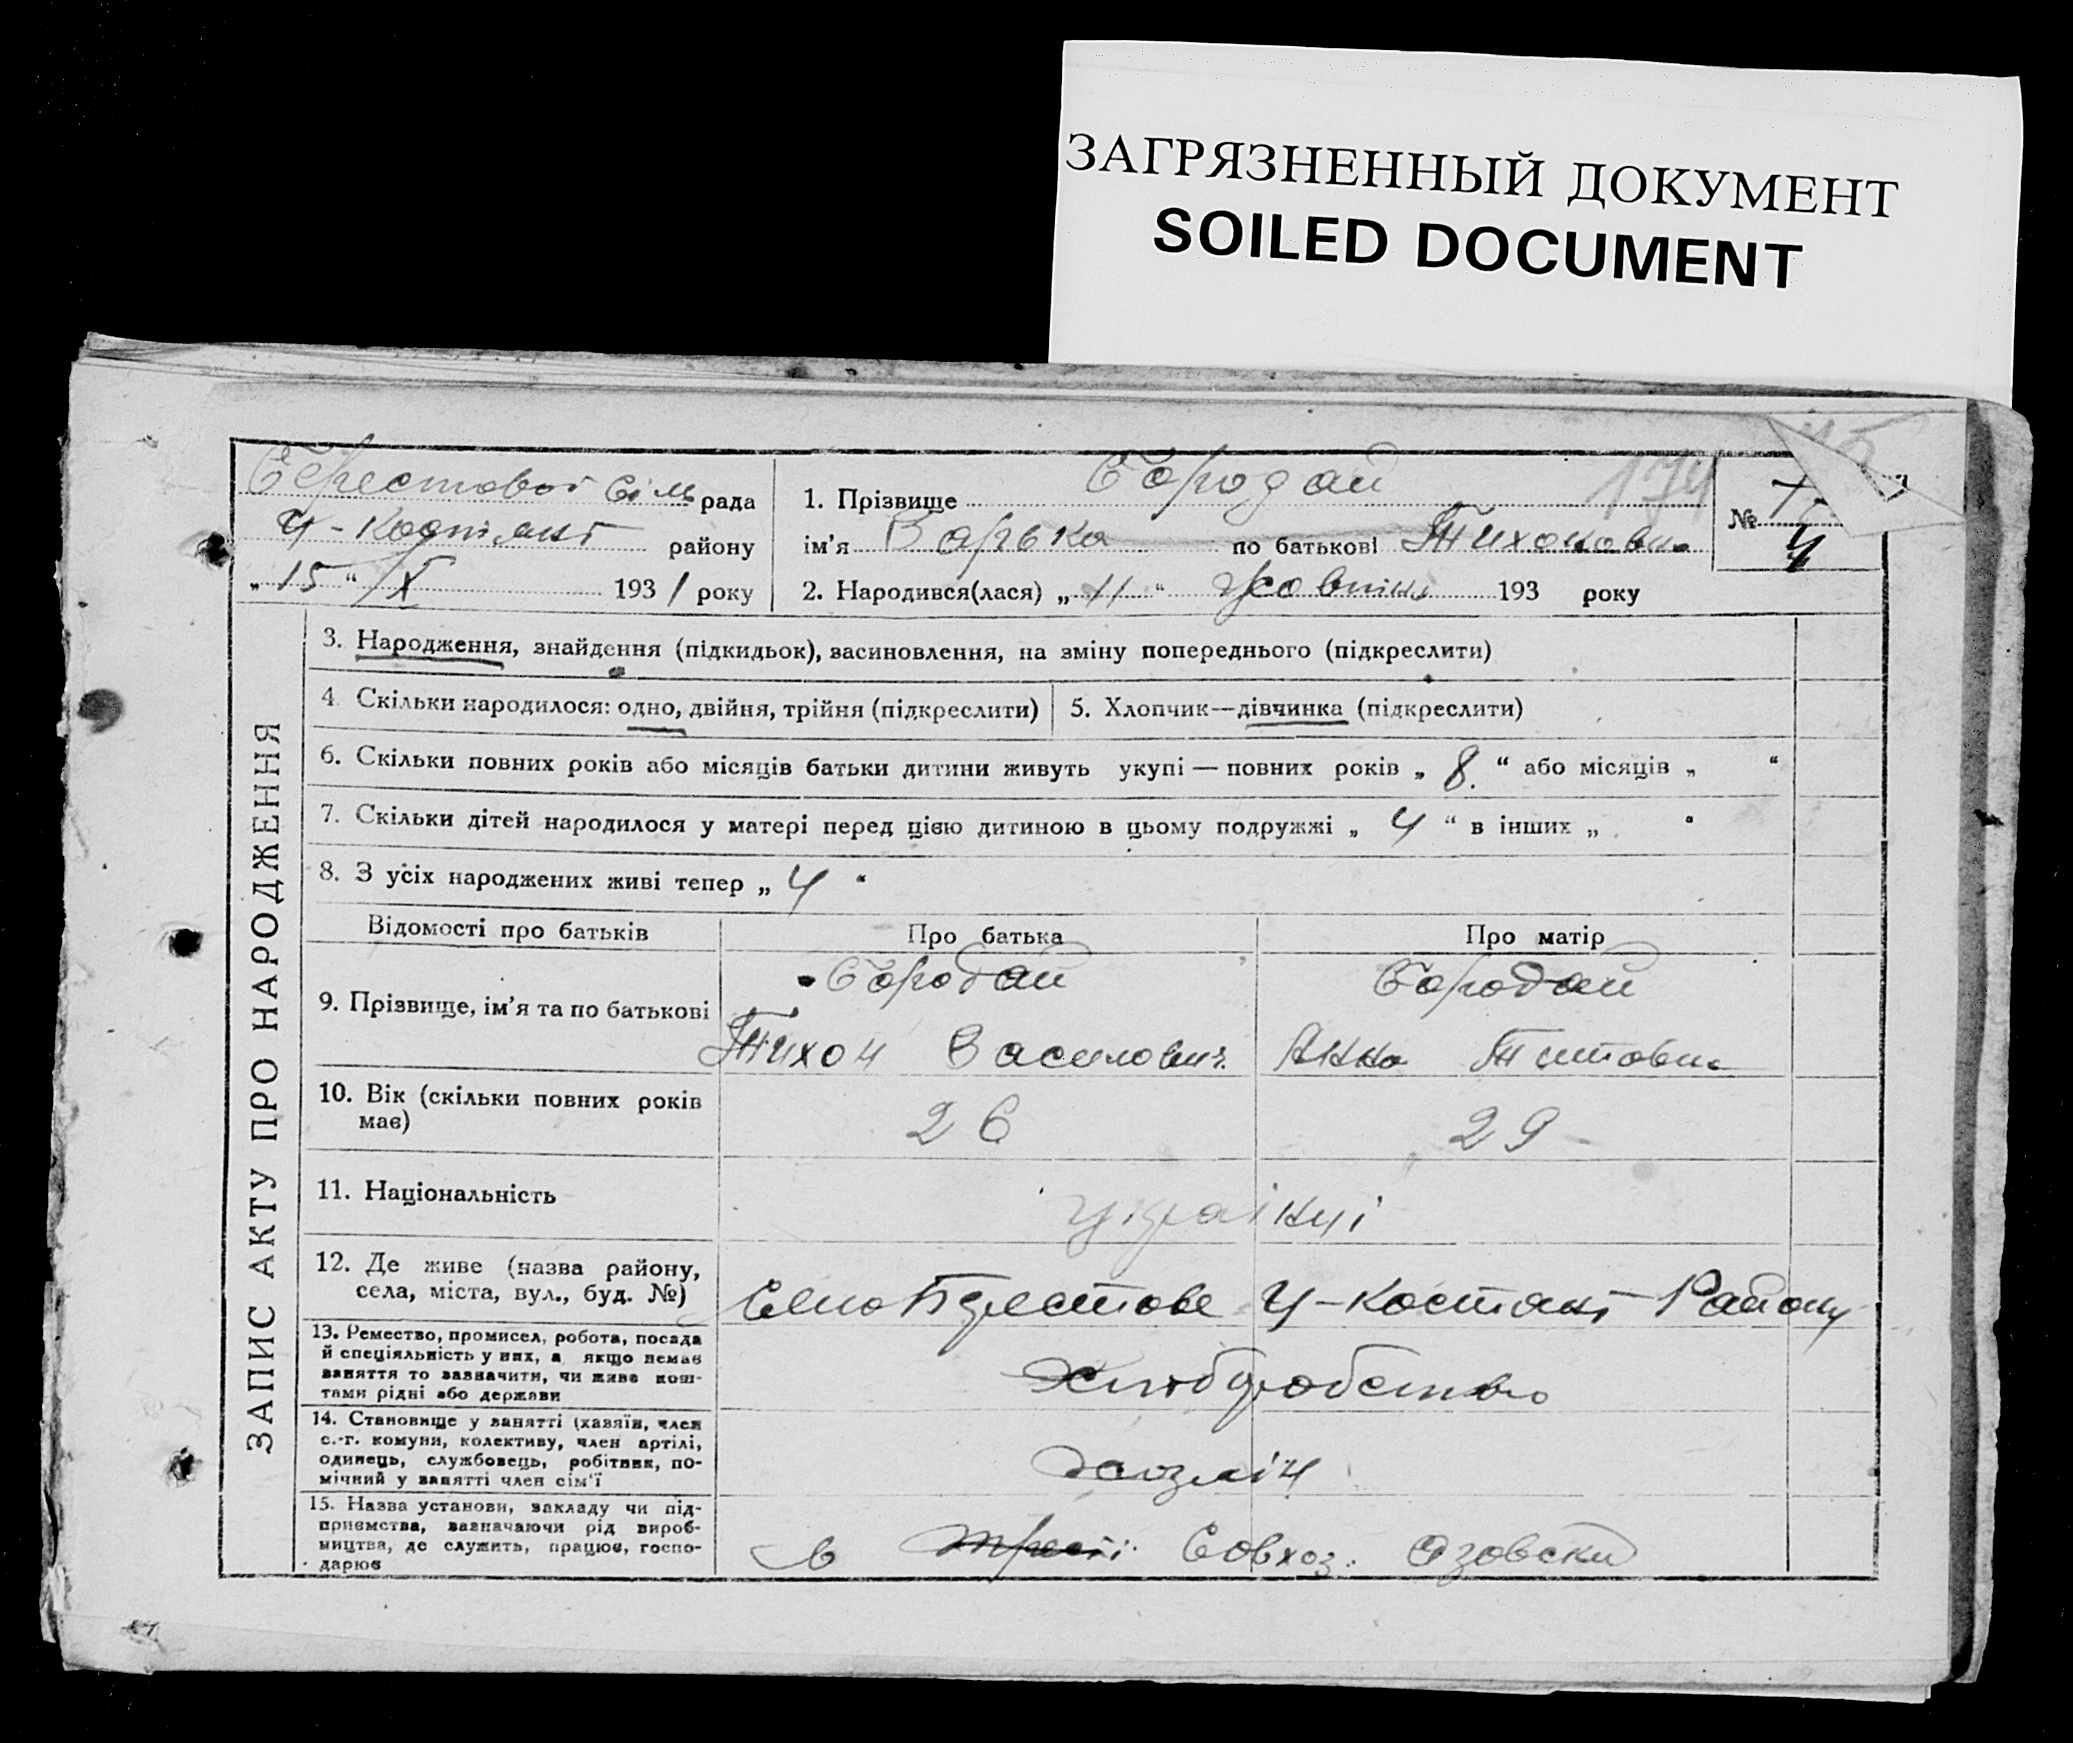 ЗАГРЯЗНЕННЫЙ ДОКУМЕНТ
SOILED DOCUMENT
Берестової Сіль рада
Ч-Костянт району
„15“ X 1931 року
1. Прізвище Бородай
174
ім’я Варька по батькові Тихоновна
2. Народився(лася) „11“ Жовтня 193 року
№
4
ЗАПИС АКТУ ПРО НАРОДЖЕННЯ
3. Народження, знайдення (підкидьок), засиновлення, на зміну попереднього (підкреслити)
4. Скільки народилося: одно, двійня, трійня (підкреслити)
5. Хлопчик—дівчинка (підкреслити)
6. Скільки повних років або місяців батьки дитини живуть укупі — повних років „8.“ або місяців „ “
7. Скільки дітей народилося у матері перед цією дитиною в цьому подружжі „4“ в інших „ “
8. З усіх народжених живі тепер „4“
Відомості про батьків
Про батька
Про матір
9. Прізвище, ім’я та по батькові
Бородай
Тихон Василович
Бородай
Анна Титовна
10. Вік (скільки повних років
має)
26
29
11. Національність
українці
12. Де живе (назва району,
села, міста, вул., буд. №)
Село Берестове Ч-Костянт Району
13. Ремество, промисел, робота, посада
й спеціяльність у них, а якщо немає
заняття то зазначити, чи живе кош-
тами рідні або держави
Хліборобство
14. Становище у занятті (хазяїн, член
с.-г. комуни, колективу, член артілі,
одинець, службовець, робітник, по-
мічний у занятті член сім’ї
15. Назва установи, закладу чи під-
приємства, зазначаючи рід вироб-
ництва, де служить, працює, госпо-
дарює
в Совхоз. Азовски